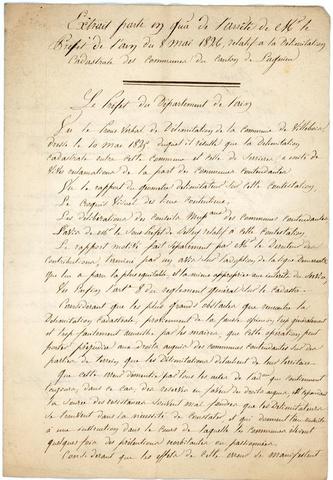 Extrait porté en queue de l'arrêté de Mr le
Préfet de l'ain du 8 mai 1826, relatif à la Délimitation
Cadastrale des communes du canton de Lagnieu
Le Préfet du Département de l'ain
Vu le Procès Verbal de Délimitation de la commune de Villebois
dressé le 10 mai 1825 duquel il résulte que la délimitation
cadastrale entre cette commune et celle de Serrières a excité de
vives réclamations de la part des communes contendantes
Vu le rapport du géomètre délimitateur sur cette contestation,
Le croquis visuel des lieux contentieux,
Les délibérations des conseils Mupaux des communes contendantes
L'avis de Mr le Sous Préfet de Belley relatif à cette contestation
Le rapport motivé fait séparément par Mr le Directeur des
Contributions, terminé par un avis sur l'adoption de la ligne
qui lui a paru la plus équitable, et la mieux appropriée aux intérêts du service,
Vu l'art 8 du règlement général sur le cadastre
Considérant que les plus grands obstacles que rencontre la
Délimitation Cadastrale, proviennent de la fausse opinion trop généralement
et trop fortement accueillie par les maires, que cette opération peut
porter préjudice aux droits acquis des communes contendantes sur des
parties de terrein que les délimitations détachent de leur territoire
Que cette erreur démentie par tous les actes de l'adon qui contiennent
toujours, dans ce cas, des réserves en faveur des droits acquis, est cependant
la source des résistances souvent mal fondées que les Délimitateurs
se trouvent dans la nécessité de constater et qui donnent lieu ensuite
à une instruction dans le cours de laquelle les communes élèvent
quelques fois des prétentions exorbitantes ou passionnées
Considérant que les effets de cette erreur se manifestent